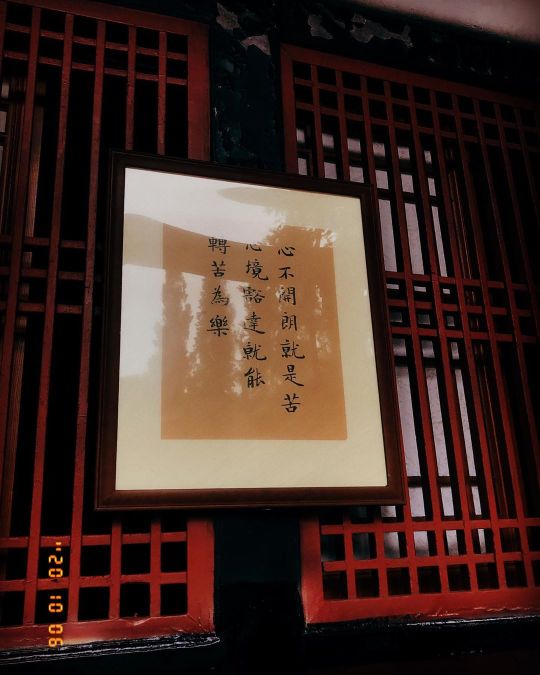 心不開朗就是苦
心境豁達就能
轉苦為樂
'20 10 06